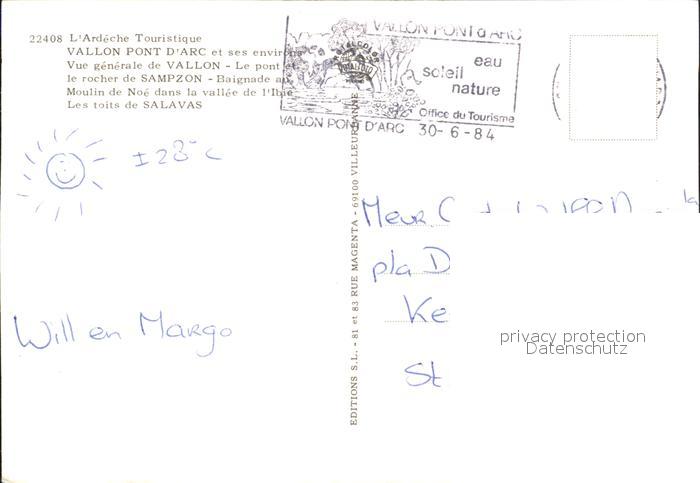 22408 L'Ardèche Touristique
VALLON PONT D'ARC et ses environs
Vue générale de VALLON - Le pont et
le rocher de SAMPZON - Baignade au
Moulin de Noé dans la vallée de l'Ibie
Les toits de SALAVAS
VALLON PONT d'ARC
eau
soleil
nature
Office du Tourisme
VALLON PONT D'ARC 30-6-84
± 28°C
Will en Margo
EDITIONS S.L. - 81 et 83 RUE MAGENTA - 69100 VILLEURBANNE
Meur
pla D
Ke
St
privacy protection
Datenschutz